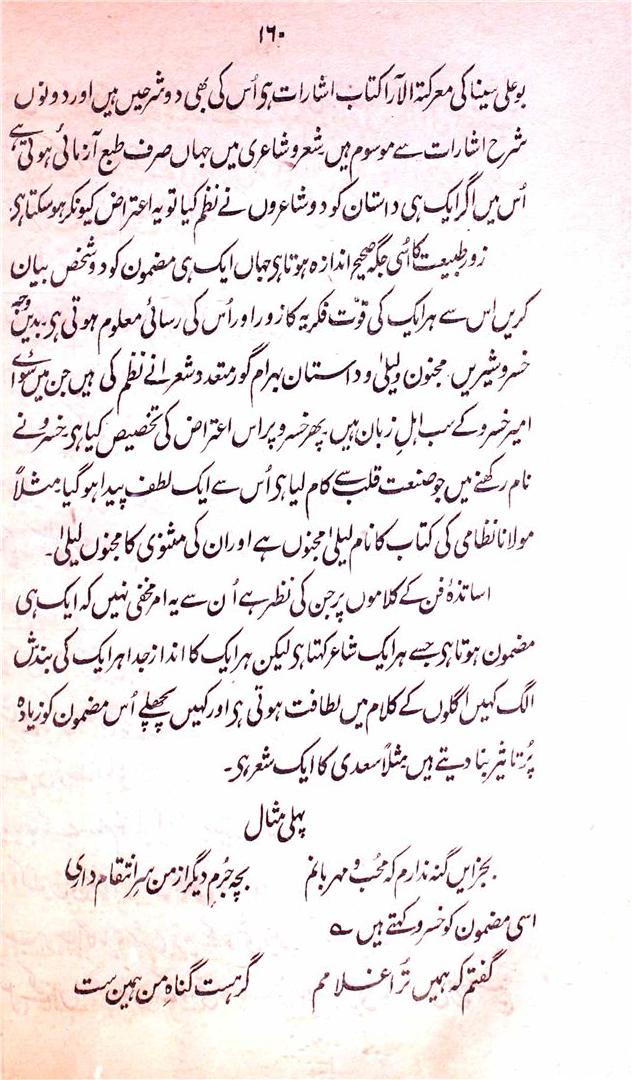 ۱۶۰
بو علی سینا کی معرکۃ الآرا کتاب اشارات ہی اُس کی بھی دو شرحیں ہیں اور دونوں
شرح اشارات سے موسوم ہیں شعر و شاعری میں جہاں صرف طبع آزمائی ہوتی ہے
اُس میں اگر ایک ہی داستان کو دو شاعروں نے نظم کیا تو یہ اعتراض کیونکر ہو سکتا ہی
زورِ طبیعت کا اُسی جگہ صحیح اندازہ ہوتا ہی جہاں ایک ہی مضمون کو دو شخص بیان
کریں اس سے ہر ایک کی قوّت فکریہ کا زور اور اُس کی رسائی معلوم ہوتی ہی بدیں وجہ
خسرو شیریں مجنون و لیلیٰ و داستان بہرام گور متعدد شعرا نے نظم کی ہیں جن میں سوائے
امیر خسرو کے سب اہلِ زبان ہیں پھر خسرو پر اس اعتراض کی تخصیص کیا ہی خسرو نے
نام رکھنے میں جو صنعت قلب سے کام لیا ہی اُس سے ایک لطف پیدا ہو گیا مثلاً
مولانا نظامی کی کتاب کا نام لیلیٰ مجنوں ہے اور ان کی مثنوی کا مجنوں لیلیٰ۔
اساتذۂ فن کے کلاموں پر جن کی نظر ہے اُن سے یہ امر مخفی نہیں کہ ایک ہی
مضمون ہوتا ہی جسے ہر ایک شاعر کہتا ہی لیکن ہر ایک کا انداز جدا ہر ایک کی بندش
الگ کہیں اگلوں کے کلام میں لطافت ہوتی ہی اور کہیں پچھلے اُس مضمون کو زیادہ
پُر تاثیر بنا دیتے ہیں مثلاً سعدی کا ایک شعر ہی۔
پہلی مثال
بجز ایں گنہ ندارم کہ محب و مہربانم بچہ جُرم دیگر از من سرِ انتقام داری
اسی مضمون کو خسرو کہتے ہیں ؎
گفتم کہ ہمیں تُرا غلامم گر ہست گناہِ من ہمین ست